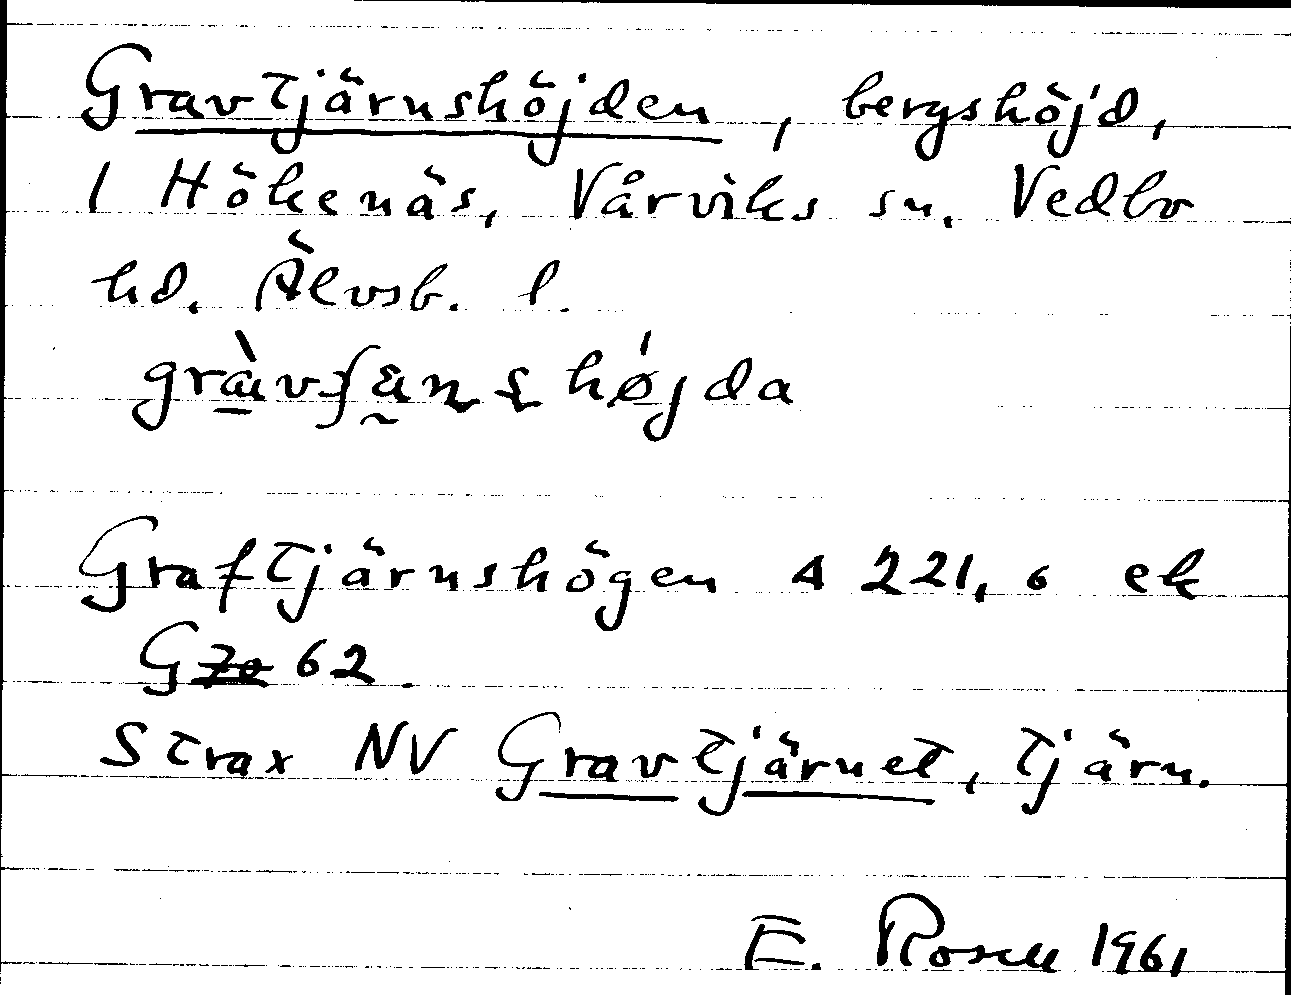 Gravtjärnshöjden, bergshöjd,
1 Hökenäs, Vårviks sn. Vedbo
hd. Älvsb. l.
Graftjärnshögen A 221, 6 ek
G 62.
Strax NV Gravtjärnet, tjärn.
E. Rosell 1961